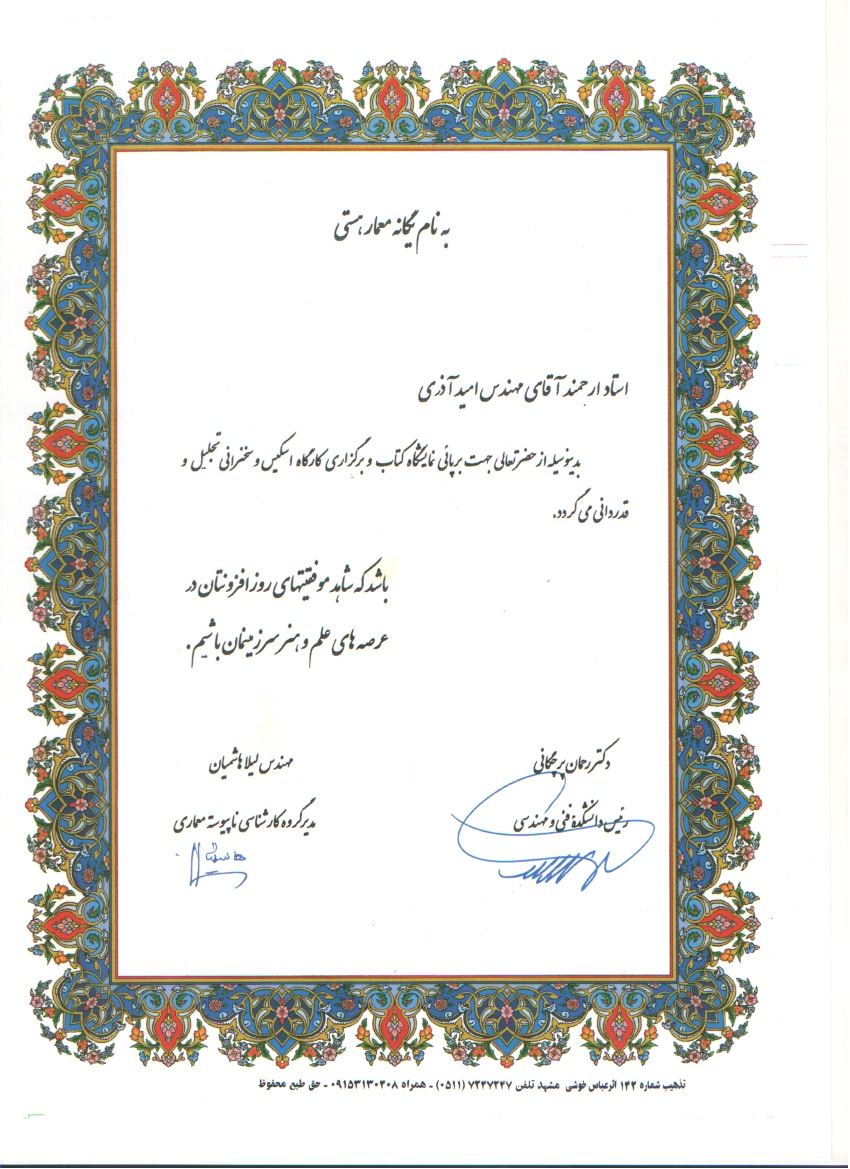 به نام یگانه معمار هستی
استاد ارجمند آقای مهندس امید آذری
بدینوسیله از حضرتعالی جهت برپائی نمایشگاه کتاب و برگزاری کارگاه اسکیس و سخنرانی تجلیل و
قدردانی می گردد.
باشد که شاهد موفقیتهای روز افزونتان در
عرصه های علم و هنر سرزمینمان باشیم.
دکتر رحمان پرچگانی
رئیس دانشکده فنی و مهندسی
مهندس لیلا هاشمیان
مدیر گروه کارشناسی ناپیوسته معماری
تذهیب شماره ۱۴۲ اثر عباس خوشی مشهد تلفن ۷۲۴۷۲۴۷ (۰۵۱۱) - همراه ۰۹۱۵۳۱۳۰۴۰۸ - حق طبع محفوظ